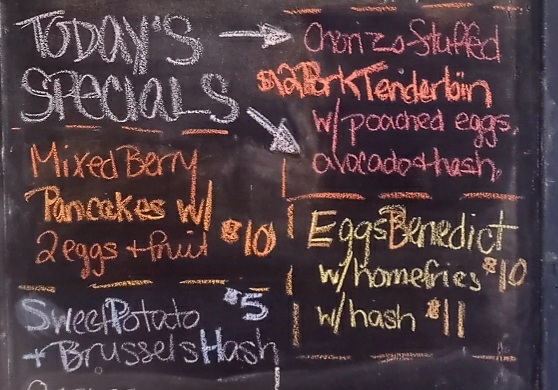 TODAY'S
SPECIALS
Chorizo Stuffed
$12 Pork Tenderloin
w/poached eggs,
avocado + hash,
Mixed Berry
Pancakes w/
2 eggs + fruit $10
Eggs Benedict
w/homefries $10
w/hash $11
Sweet Potato $5
+ Brussels Hash